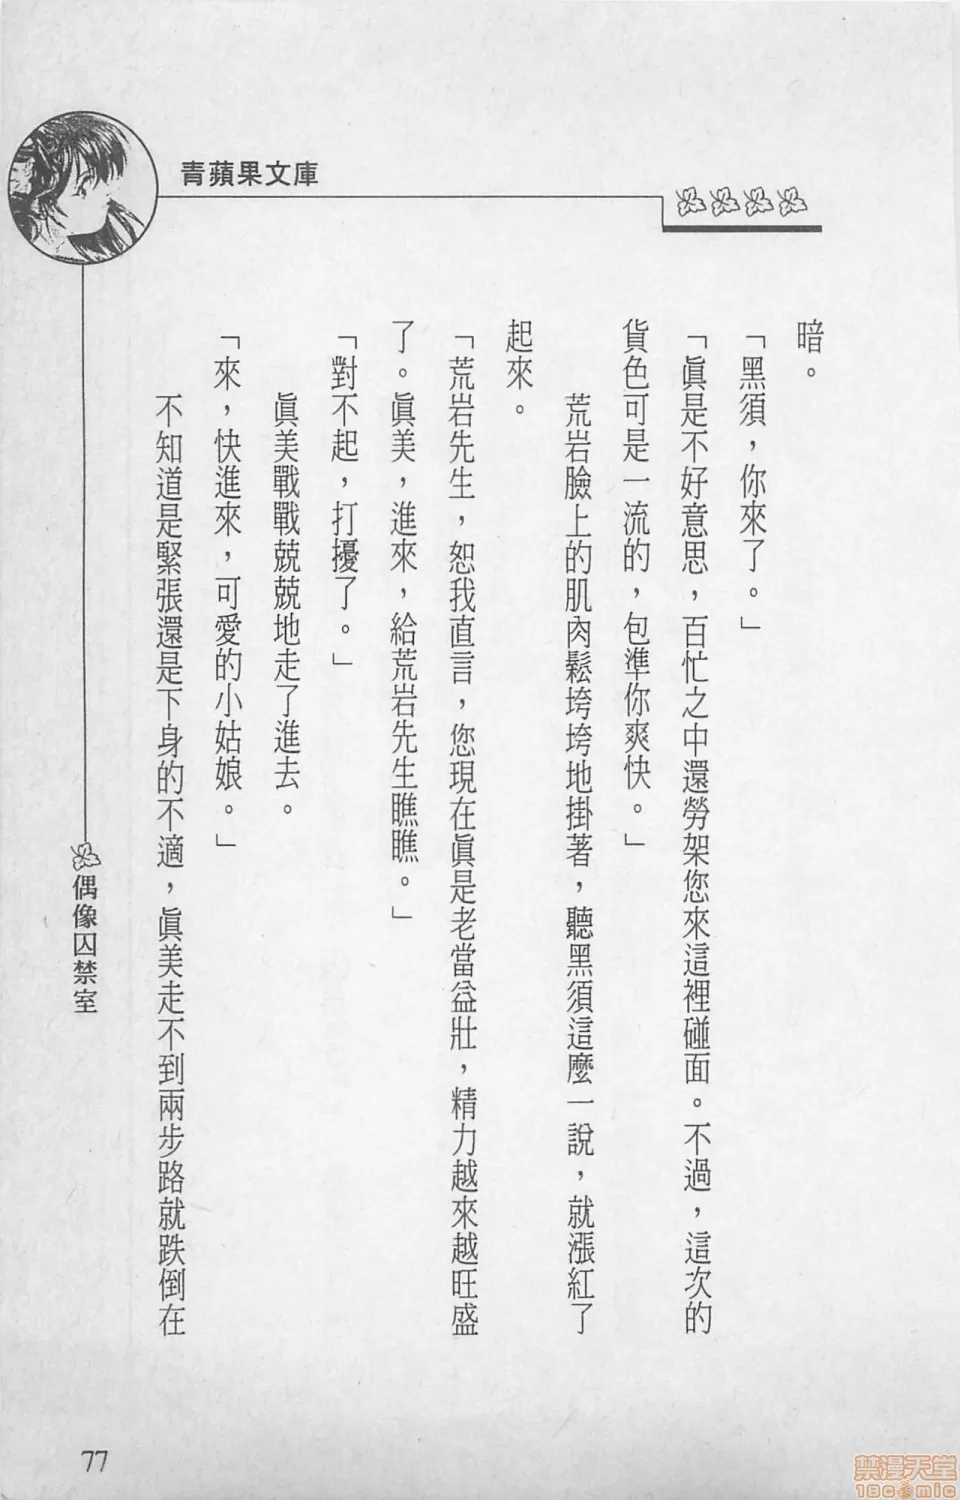 青蘋果文庫
暗。
「黑須，你來了。」
「眞是不好意思，百忙之中還勞架您來這裡碰面。不過，這次的
貨色可是一流的，包準你爽快。」
荒岩臉上的肌肉鬆垮垮地掛著，聽黑須這麼一說，就漲紅了
起來。
「荒岩先生，恕我直言，您現在眞是老當益壯，精力越來越旺盛
了。眞美，進來，給荒岩先生瞧瞧。」
「對不起，打擾了。」
眞美戰戰兢兢地走了進去。
「來，快進來，可愛的小姑娘。」
不知道是緊張還是下身的不適，眞美走不到兩步路就跌倒在
偶像囚禁室
77
禁漫天堂
18comic